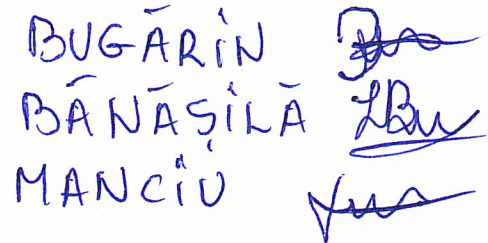 BUGĂRIN
BĂNĂȘILĂ
MANCIU